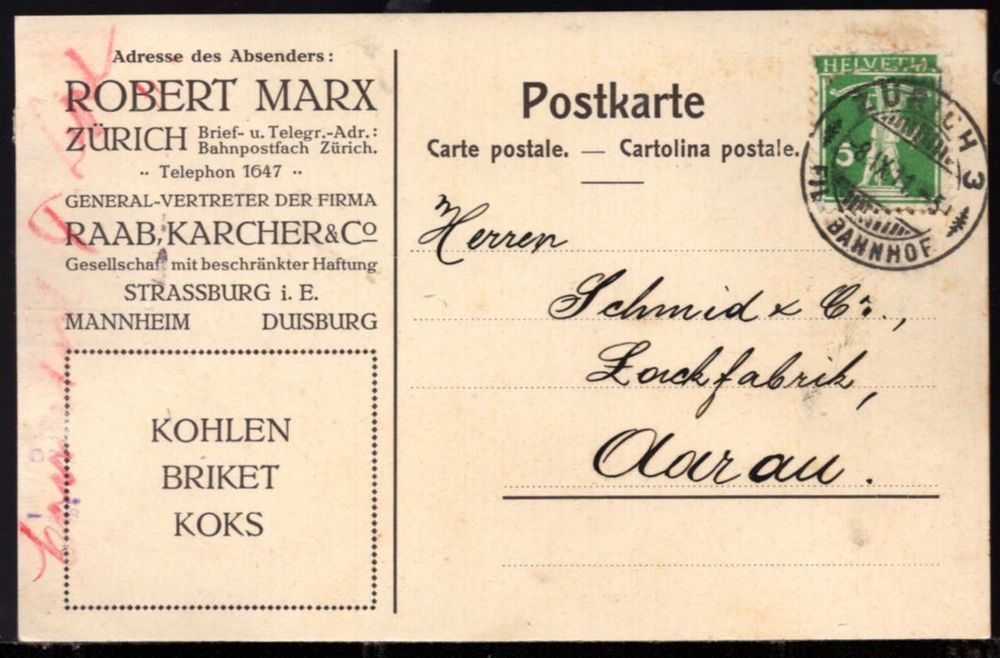 Adresse des Absenders:
ROBERT MARX
ZÜRICH Brief- u. Telegr.-Adr.:
Bahnpostfach Zürich.
·· Telephon 1647 ··
GENERAL-VERTRETER DER FIRMA
RAAB, KARCHER & Co
Gesellschaft mit beschränkter Haftung
STRASSBURG i. E.
MANNHEIM DUISBURG
KOHLEN
BRIKET
KOKS
Postkarte
Carte postale. — Cartolina postale.
HELVETIA
5
ZÜRICH 3
FIL. BAHNHOF
Herren
Schmid & Co.,
Lackfabrik,
Aarau.